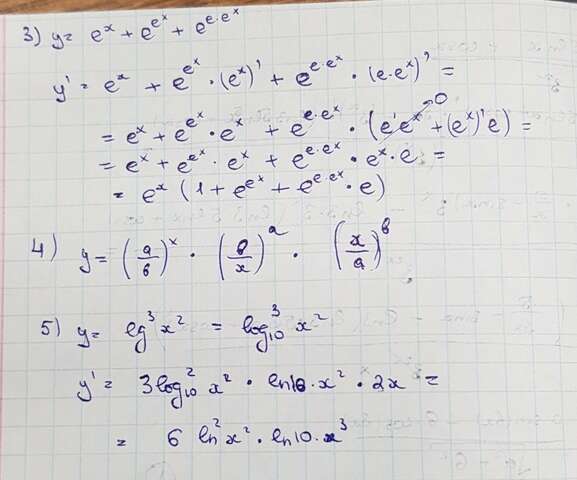 3) y = e^x + e^{e^x} + e^{e·e^x}
y' = e^x + e^{e^x} · (e^x)' + e^{e·e^x} · (e·e^x)' =
= e^x + e^{e^x} · e^x + e^{e·e^x} · (e'e^x → 0 + (e^x)'e) =
= e^x + e^{e^x} · e^x + e^{e·e^x} · e^x · e =
= e^x (1 + e^{e^x} + e^{e·e^x} · e)
4) y = (a/b)^x · (b/x)^a · (x/a)^b
5) y = lg^3 x^2 = log_{10}^3 x^2
y' = 3log_{10}^2 x^2 · ln10 · x^2 · 2x =
= 6 ln^2 x^2 · ln10 · x^3